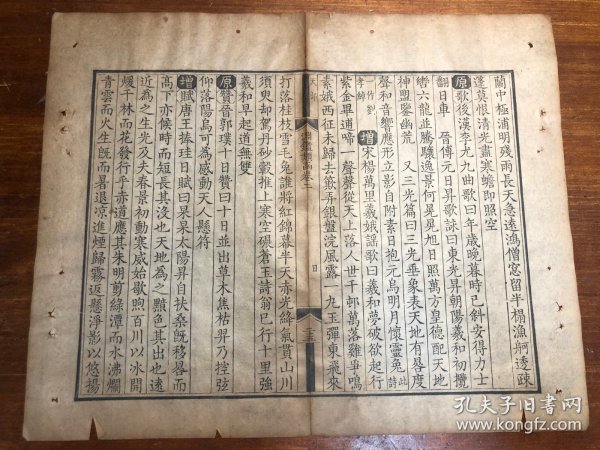 蘭中極浦明殘雨長天急遠鴻僧窓留半榻漁舸透疎
蓬莫恨清光盡寒蟾即照空
原歌後漢李尤九曲歌曰年歲晚暮時已斜安得力士
翻日車 晉傅元日昇歌詠曰東光昇朝陽羲和初攬
轡六龍並騰驤逸景何晃晃旭日照萬方皇德配天地
神盟鑒幽荒 又三光篇曰三光垂象表天地有晷度
聲和音響應形立影自附素日抱元烏明月懷靈兔此詩
一作劉孝綽 增宋楊萬里羲娥謠歌曰羲和夢破欲起行
紫金畢逋啼一聲聲從天上落人世千邨萬落雞爭鳴
素娥西征未歸去簸弄銀盤浣風露一九玉彈東飛來
天部
淵鑑類函卷二
日
打落桂枝雪毛兔誰將紅錦幕半天赤光絳氣貫山川
須臾却駕丹砂轂推上寒空碾蒼玉詩翁已行十里強
羲和早起道無雙
原贊晉郭璞十日贊曰十日並出草木焦枯羿乃控弦
仰落陽烏可為感動天人懸符
增賦唐王捧珪日賦曰杲杲太陽昇自扶桑既移晷而
高下亦候時而短長其沒也天地為之黯色其出也遠
近為之生光及夫春景初動寒威始歇煦百川以冰開
煖千林而花發行乎赤道應其朱明剪綠潭而水沸爛
青雲而火生既而暑退涼進煙歸霧返懸淨影以悠揚
孔夫子旧书网
www.kongfz.com